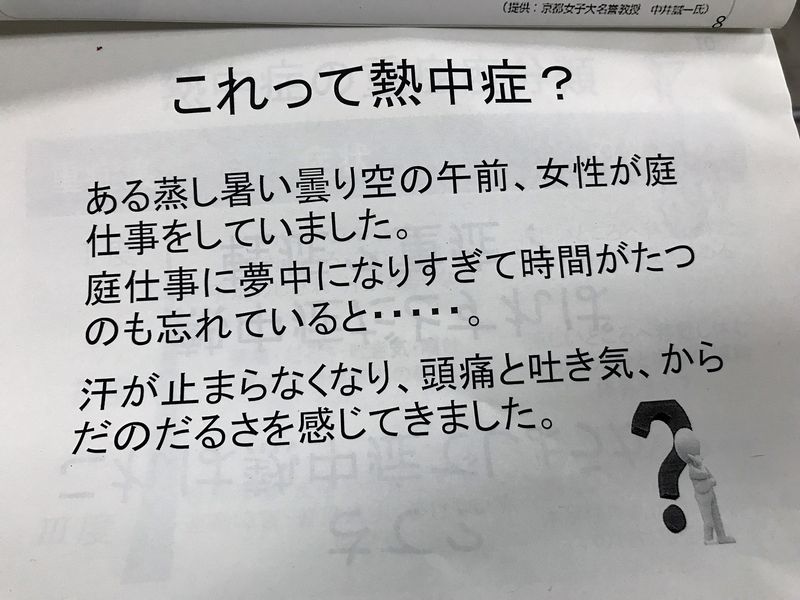 (提供：京都女子大名誉教授 中井誠一氏)
8
これって熱中症？
ある蒸し暑い曇り空の午前、女性が庭
仕事をしていました。
庭仕事に夢中になりすぎて時間がたつ
のも忘れていると・・・・・。
汗が止まらなくなり、頭痛と吐き気、から
だのだるさを感じてきました。
?